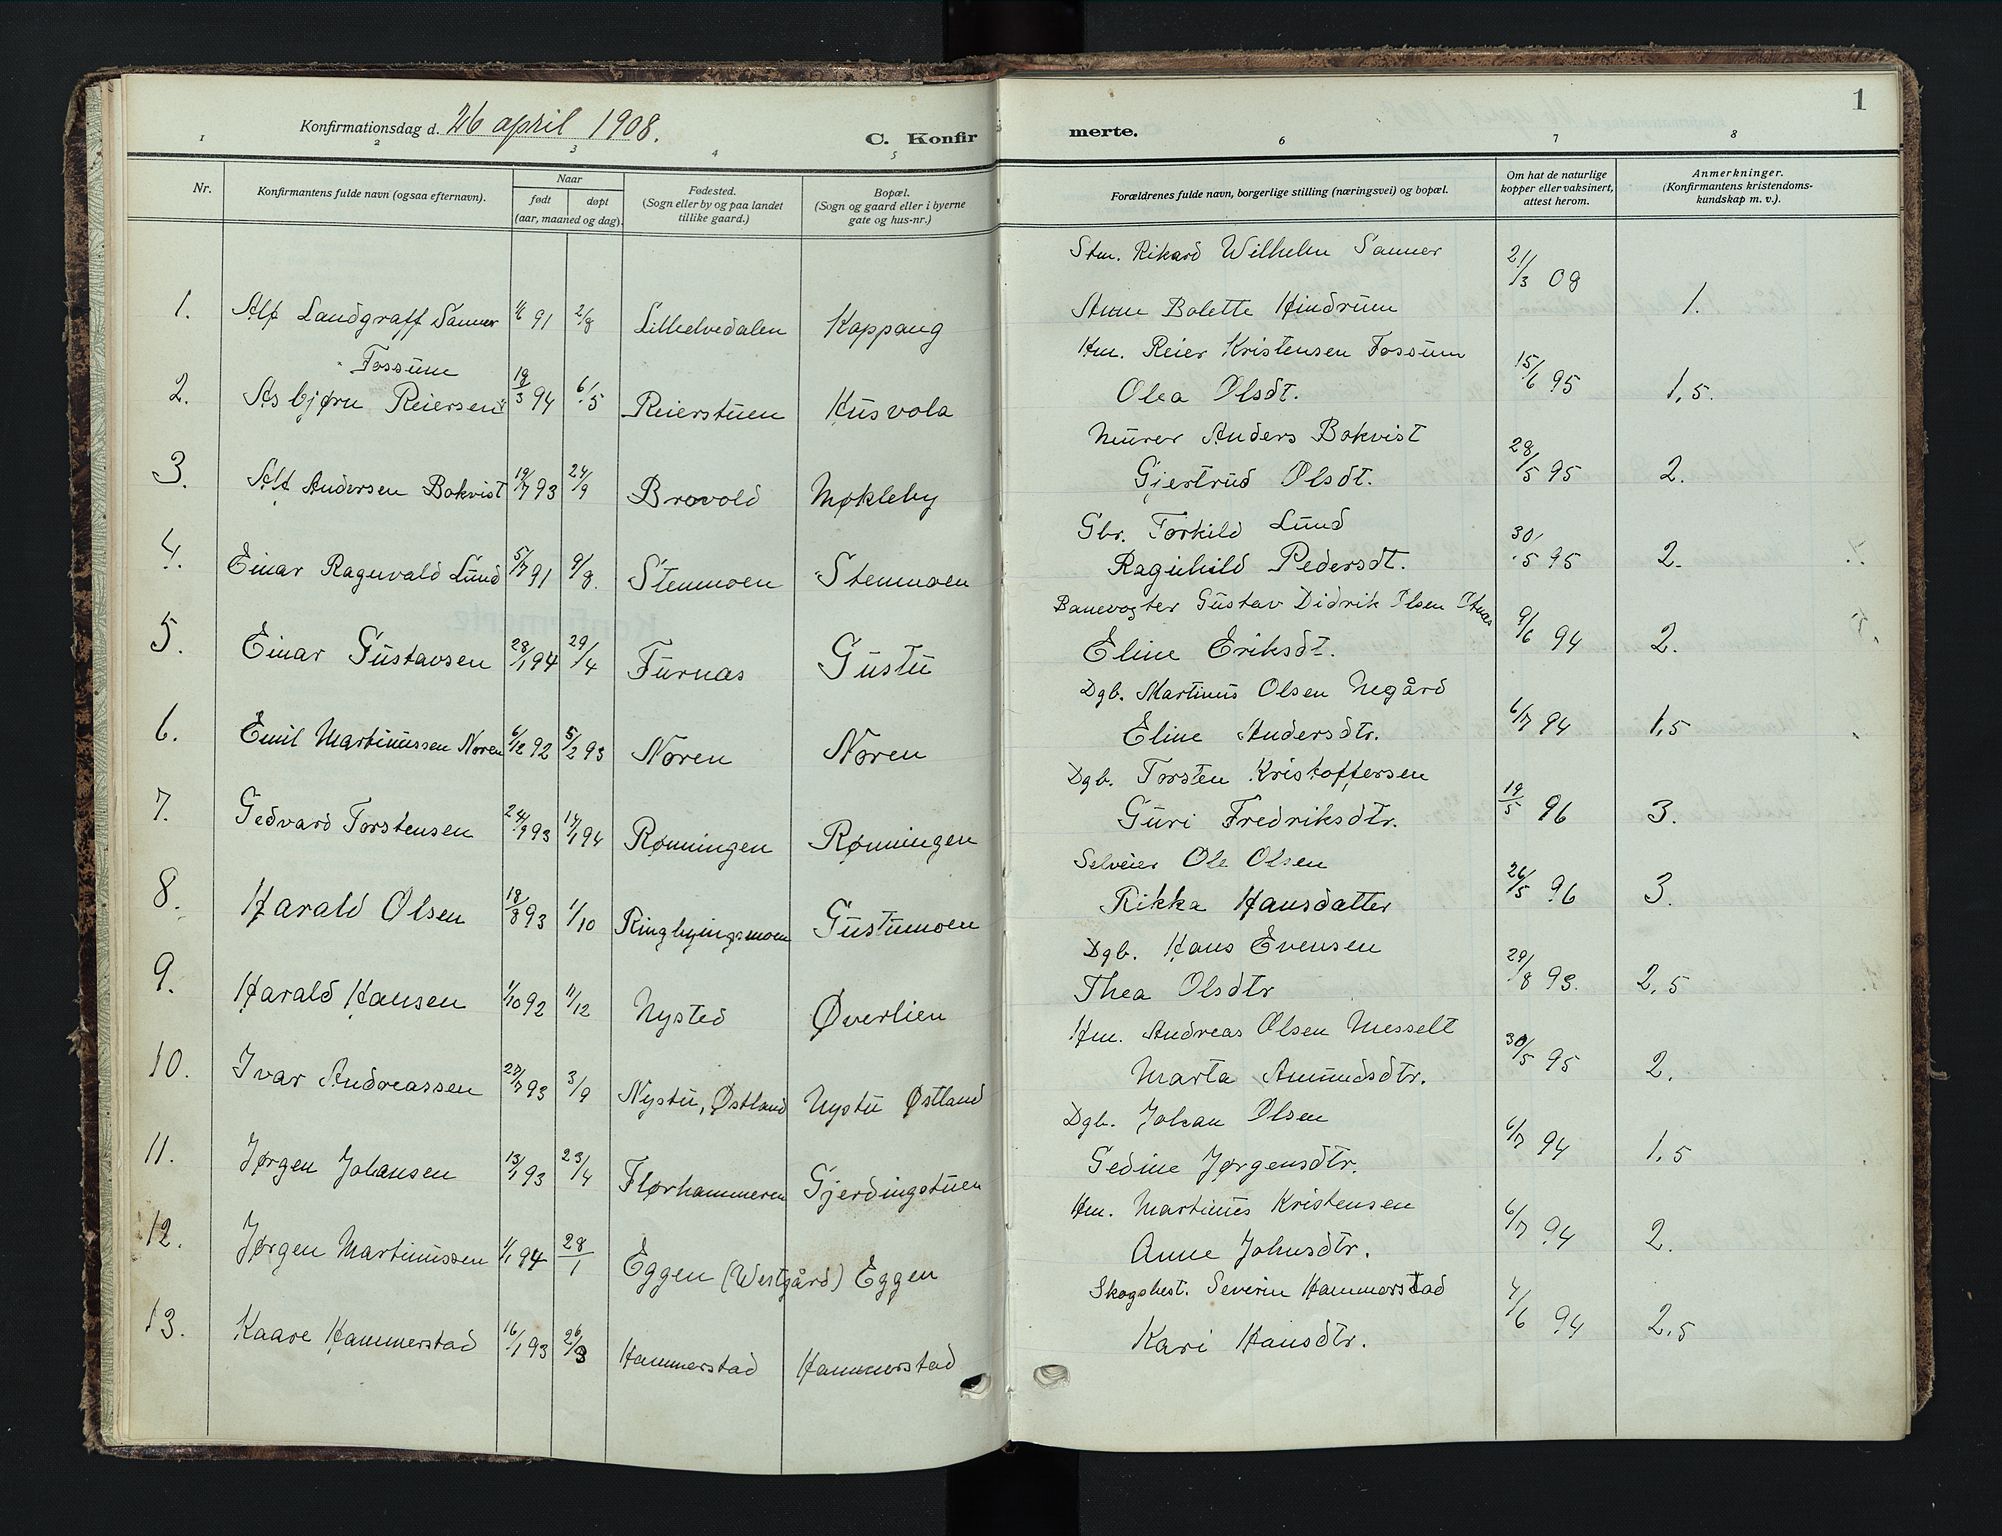 Konfirmationsdag d. 26 april 1908.
C. Konfir
merte.
1
1 2 3 4 5 6 7 8
Nr.
Konfirmantens fulde navn (ogsaa efternavn).
Naar
født døpt
(aar, maaned og dag).
Fødested.
(Sogn eller by og paa landet
tillike gaard.)
Bopæl.
(Sogn og gaard eller i byerne
gate og hus-nr.)
Forældrenes fulde navn, borgerlige stilling (næringsvei) og bopæl.
Om hat de naturlige
kopper eller vaksinert,
attest herom.
Anmerkninger.
(Konfirmantens kristendoms-
kundskap m. v.).
Stm. Rikard Wilhelm Sanner
1. Alf Landgraff Sanner 91 2/8 Lilleelvedalen Koppang Anne Bolette Hindrum 21/3 08 1.
Fossum
Hm. Reier Kristensen Fossum
2. Asbjørn Reiersen 18/3 94 6/5 Reierstuen Kusvola Olea Olsdt. 15/6 95 1,5.
Murer Anders Bokvist
3. Alf Andersen Bokvist 19/7 93 24/9 Brovold Møkleby Gjertrud Olsdt. 28/5 95 2.
Gbr. Torkild Lund
4. Einar Ragnvald Lund 5/7 91 9/8. Stenmoen Stenmoen Ragnhild Pedersdt. 30/5 95 2.
Banevogter Gustav Didrik Olsen
5. Einar Gustavsen 28/1 94 29/4 Furnas Gustu Eline Eriksdt. 9/6 94 2.
Dgb. Martinus Olsen Negård
6. Emil Martinussen Noren 6/12 92 5/2 93 Noren Noren Eline Andersdtr. 6/7 94 1,5
Dgb. Torsten Kristoffersen
7. Gedvard Torstensen 24/9 93 17/1 94 Rønningen Rønningen Guri Fredriksdtr. 19/5 96 3.
Selveier Ole Olsen
8. Harald Olsen 18/8 93 1/10 Ringbyingsmoen Gustumoen Rikka Hansdatter 26/5 96 3.
Dgb. Hans Evensen
9. Harald Hansen 1/10 92 11/12 Nysted Øverlien Thea Olsdtr 29/8 93. 2,5
Hm. Andreas Olsen Messelt
10. Ivar Andreassen 27/7 93 3/9 Nystu, Østland Nystu Østland Marta Amundsdtr. 30/5 95 2.
Dgb. Johan Olsen
11. Jørgen Johansen 13/1 93 23/4 Flørhammeren Gjerdingstuen Gedine Jørgensdtr. 6/7 94 1,5
Hm. Martinus Kristensen
12. Jørgen Martinussen 1/1 94 28/1 Eggen (Westgård) Eggen Anne Johnsdtr. 6/7 94 2.
Skogsbest. Severin Hammerstad
13. Kaare Hammerstad 16/1 93 26/3 Hammerstad Hammerstad Kari Hansdtr. 4/6 94 2,5